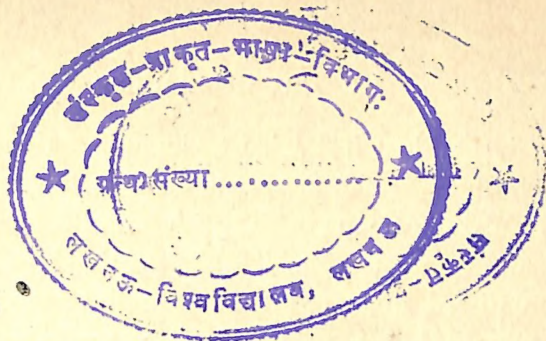 संस्कृत-प्राकृत-भाषा-विभागः
ग्रन्थ संख्या..............
लखनऊ-विश्वविद्यालय, लखनऊ
संस्कृत-